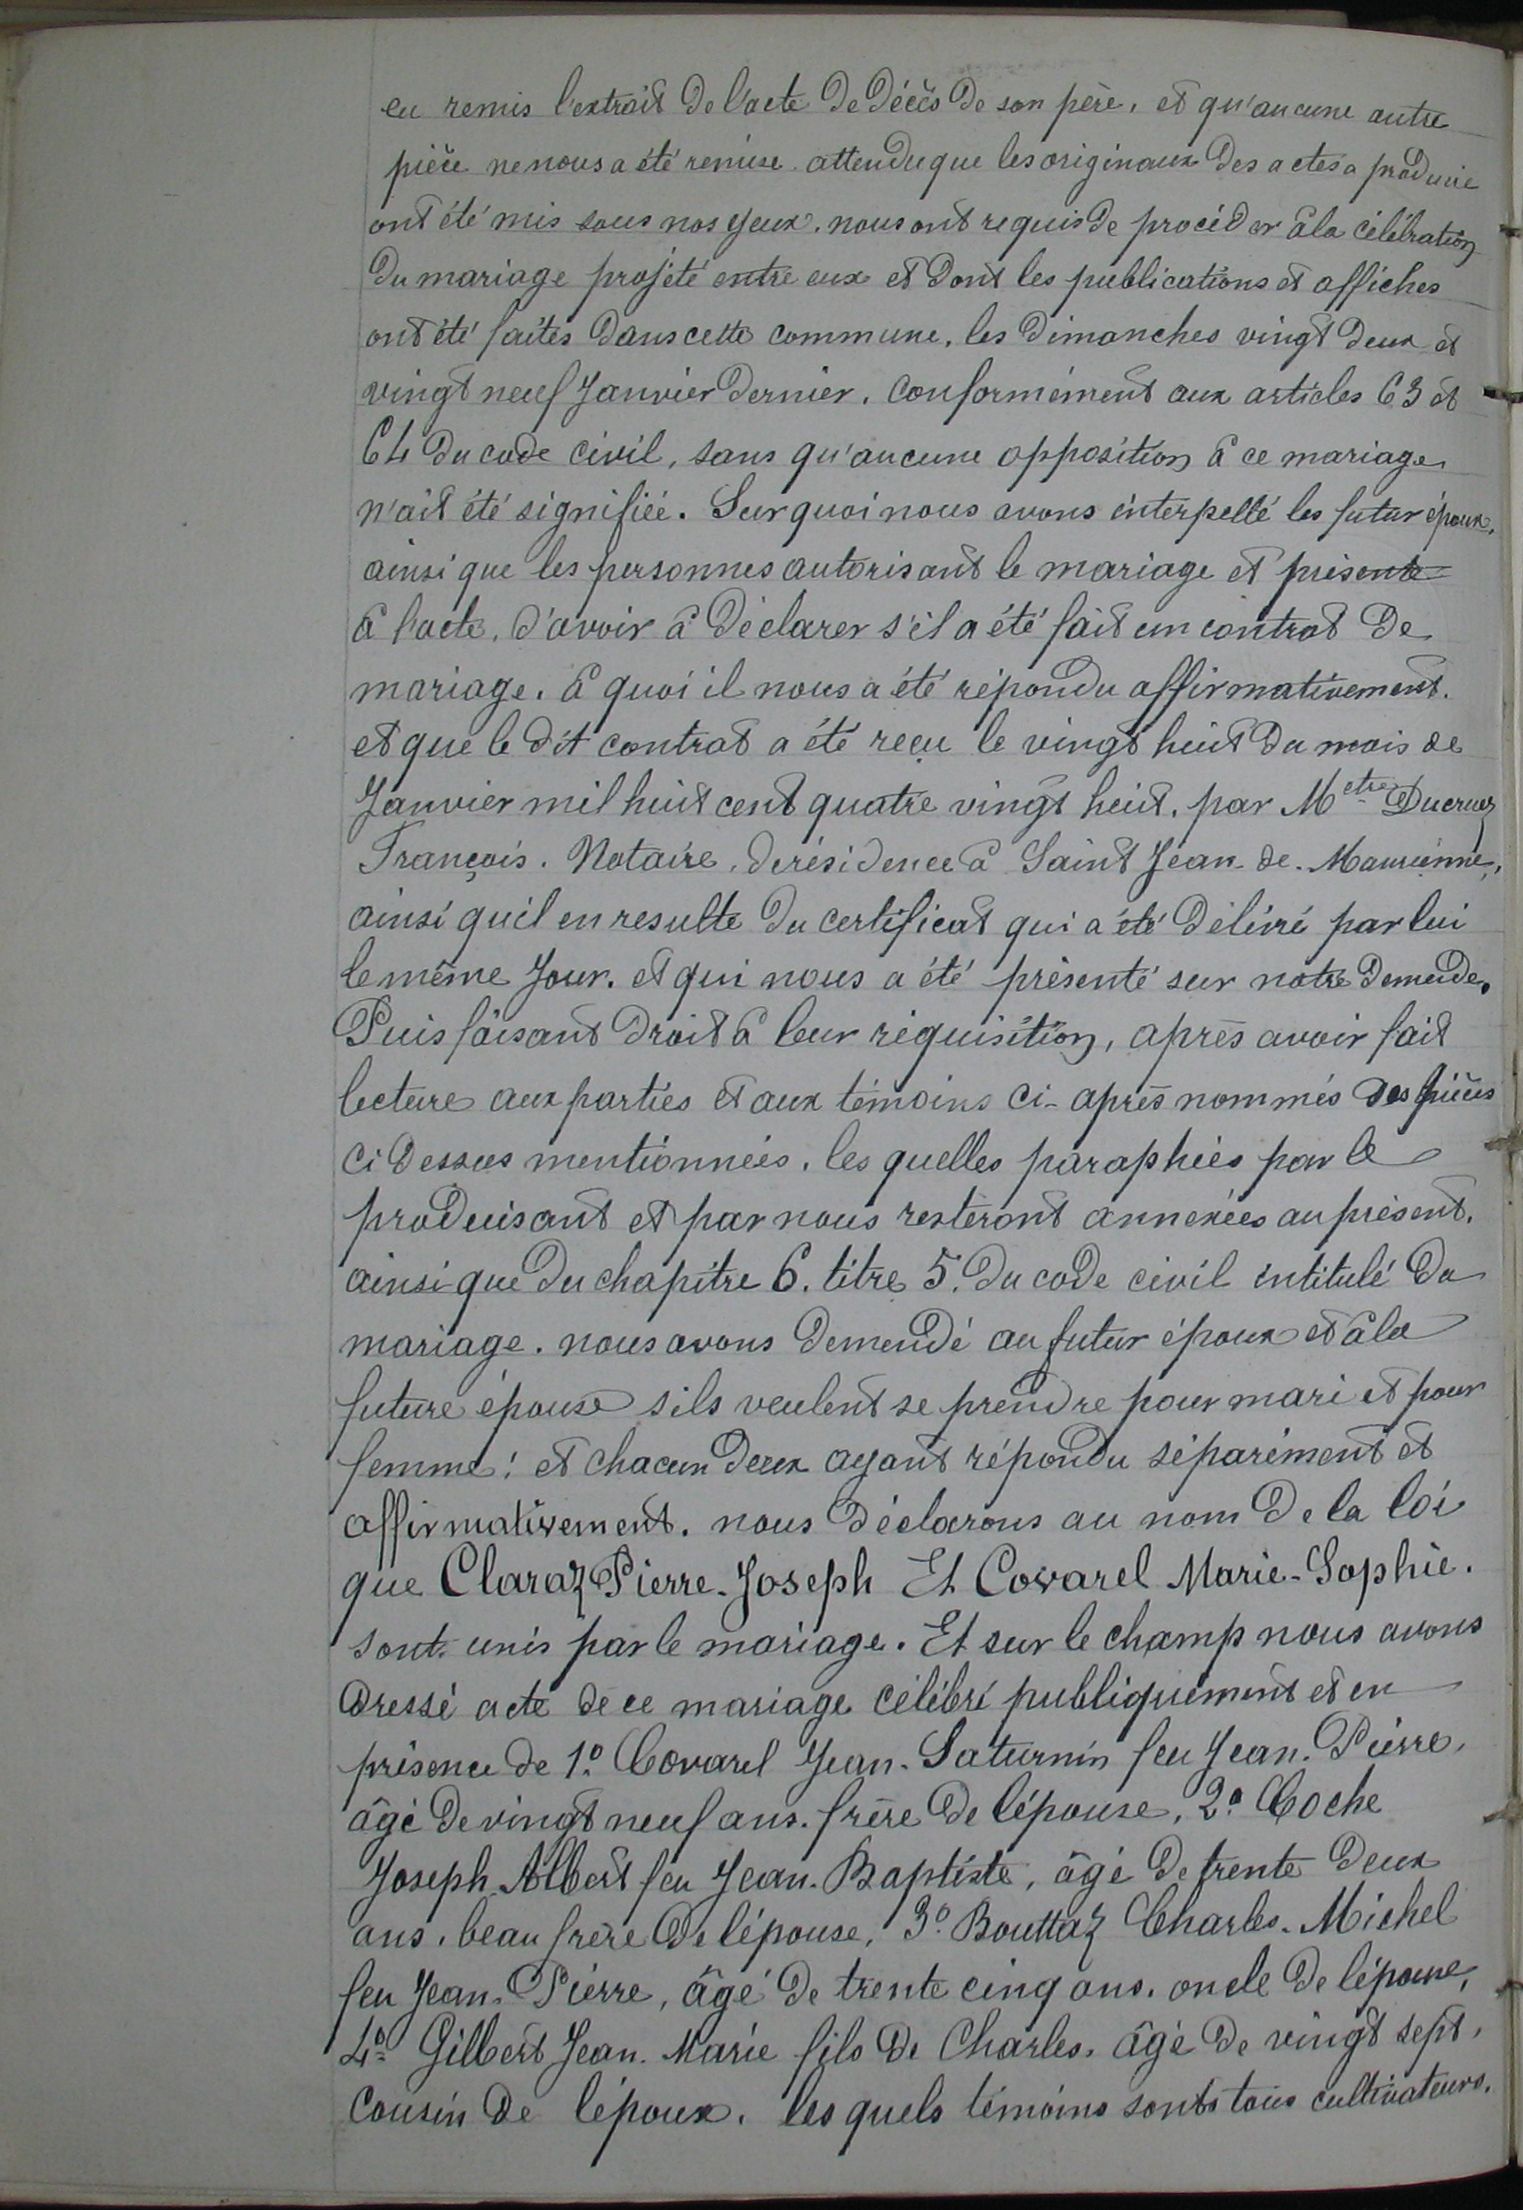 eu remis l'extrait de l'acte de décès de son père, et qu'aucune autre
pièce ne nous a été remise. attendu que les originaux des actes a produire
ont été mis sous nos yeux. nous ont requis de procéder à la célébration
du mariage projeté entre eux et dont les publications et affiches
ont été faites dans cette commune, les dimanches vingt deux et
vingt neuf Janvier dernier, conformément aux articles 63 et
64 du code civil, sans qu'aucune opposition à ce mariage
n'ait été signifiée. Sur quoi nous avons interpellé les futur époux,
ainsi que les personnes autorisant le mariage et présente
à l'acte, d'avoir à déclarer s'il a été fait un contrat de
mariage. à quoi il nous a été répondu affirmativement.
et que le dit contrat a été reçu le vingt huit du mois de
Janvier mil huit cent quatre vingt huit, par Metre Ducruez
François. Notaire, de résidence à Saint Jean-de-Maurienne,
ainsi qu'il en resulte du certificat qui a été délivré par lui
le même Jour. et qui nous a été présenté sur notre demende.
Puis faisant droit à leur réquisition, après avoir fait
lecture aux parties et aux témoins ci-après nommés des pièces
ci dessus mentionnées, les quelles paraphées par le
produisant et par nous resteront annexées au présent,
ainsi que du chapitre 6. titre 5. du code civil intitulé du
mariage. nous avons demendé au futur époux et à la
future épouse s'ils veulent se prendre pour mari et pour
femme! et chacun deux ayant répondu séparément et
affirmativement. nous déclarons au nom de la loi
que Claraz Pierre-Joseph Et Covarel Marie-Sophie.
sont unis par le mariage. Et sur le champ nous avons
dressé acte de ce mariage célébré publiquement et en
présence de 1º. Covarel Jean-Saturnin feu Jean-Pierre,
âgé de vingt neuf ans. frère de l'épouse, 2º. Coche
Joseph Albert feu Jean-Baptiste, âgé de trente deux
ans, beau frère de l'épouse, 3º. Bouttaz Charles-Michel
feu Jean-Pierre, âgé de trente cinq ans. oncle de l'épouse,
4º Gilbert Jean-Marie fils de Charles, âgé de vingt sept,
cousin de l'époux. les quels témoins sont tous cultivateurs.